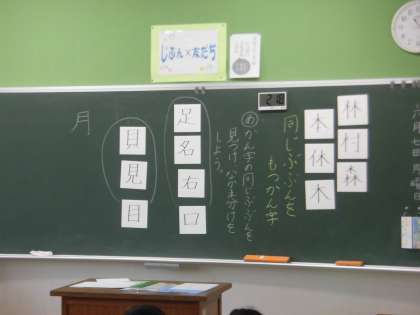 じぶん×友だち
林
村
森
本
休
木
同じぶぶんを
もつかん字
め かん字の同じぶぶんを
見つけ、なかま分けを
しよう。
足
名
右
口
貝
見
目
月